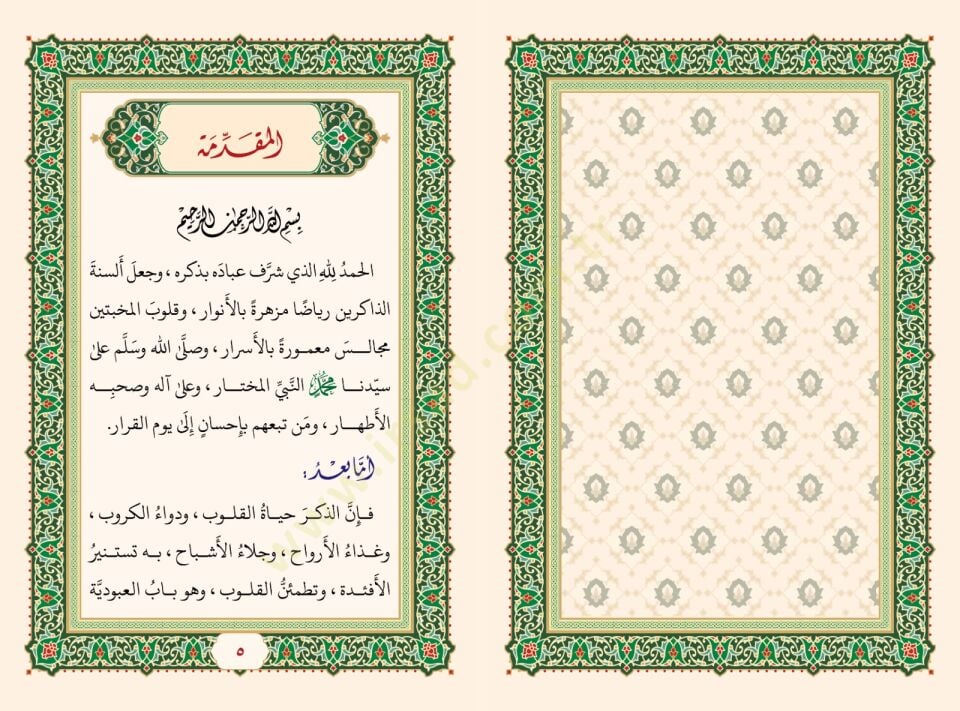 المقَدِّمَة
بِسْمِ اللهِ الرَّحْمٰنِ الرَّحِيْمِ
الحمدُ لِلهِ الذي شرَّف عبادَه بذكره ، وجعلَ ألسنةَ
الذاكرين رياضًا مزهرةً بالأَنوار ، وقلوبَ المخبتين
مجالـسَ معمـورةً بالأَسرار ، وصلَّى الله وسَلَّم علىٰ
سيّدنـا مُحَمَّدٍ النَّبيِّ المختـار ، وعلىٰ آله وصحبِـه
الأَطهـار ، ومَن تبعهم بإِحسانٍ إِلىٰ يوم القرار.
أمَّا بعْـدُ :
فـإِنَّ الذكـرَ حيـاةُ القلـوب ، ودواءُ الكروب ،
وغـذاءُ الأَرواح ، وجلاءُ الأَشبـاح ، بـه تستـنيرُ
الأَفئـدة ، وتطمئنُّ القلـوب ، وهو بـابُ العبوديَّة
٥